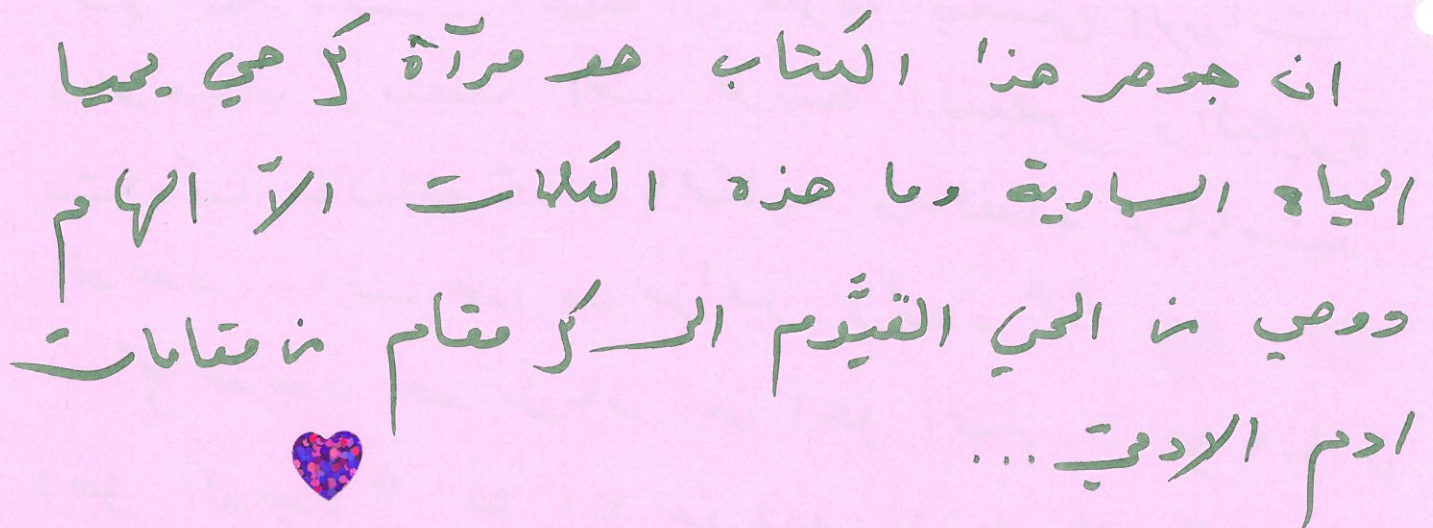 ان جوهر هذا الكتاب هو مرآة كل حي يحيا
الحياة السماوية وما هذه الكلمات الاّ الهام
ووحي من الحي القيّوم الى كل مقام من مقامات
ادم الادمي...